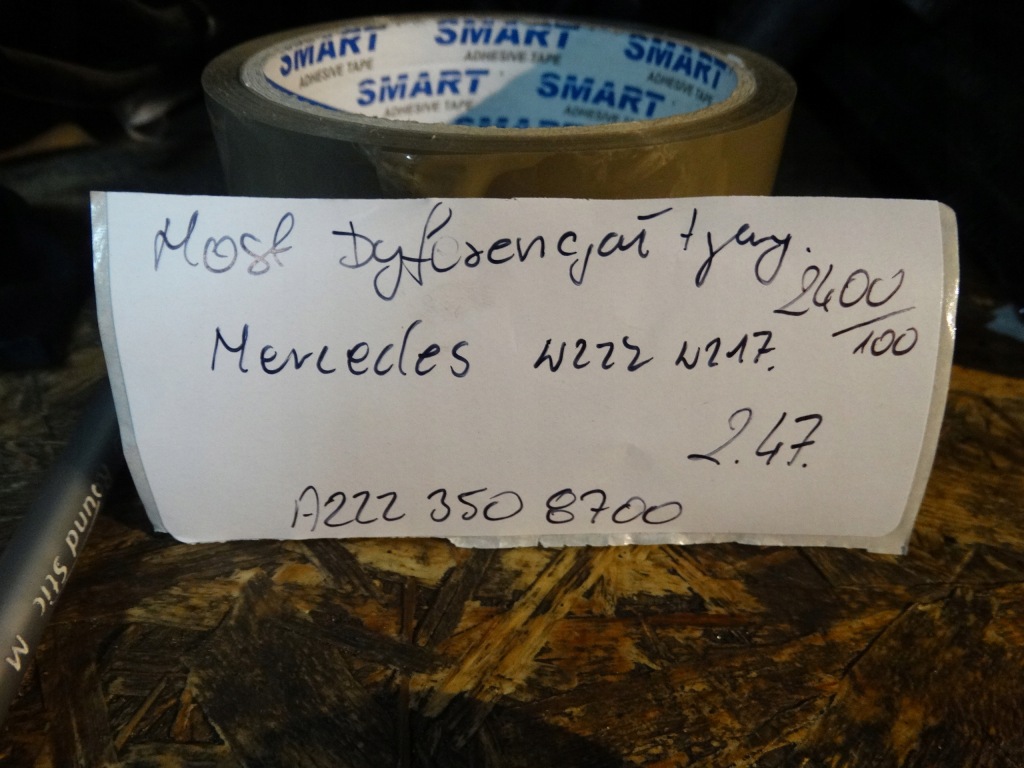 SMART SMART SMART
ADHESIVE TAPE ADHESIVE TAPE ADHESIVE TAPE
SMART SMART
ADHESIVE TAPE ADHESIVE TAPE
SMART
Most Dyferencjał tylny.
2400/100
Mercedes W222 W217.
2.47.
A222 350 8700
Stic M